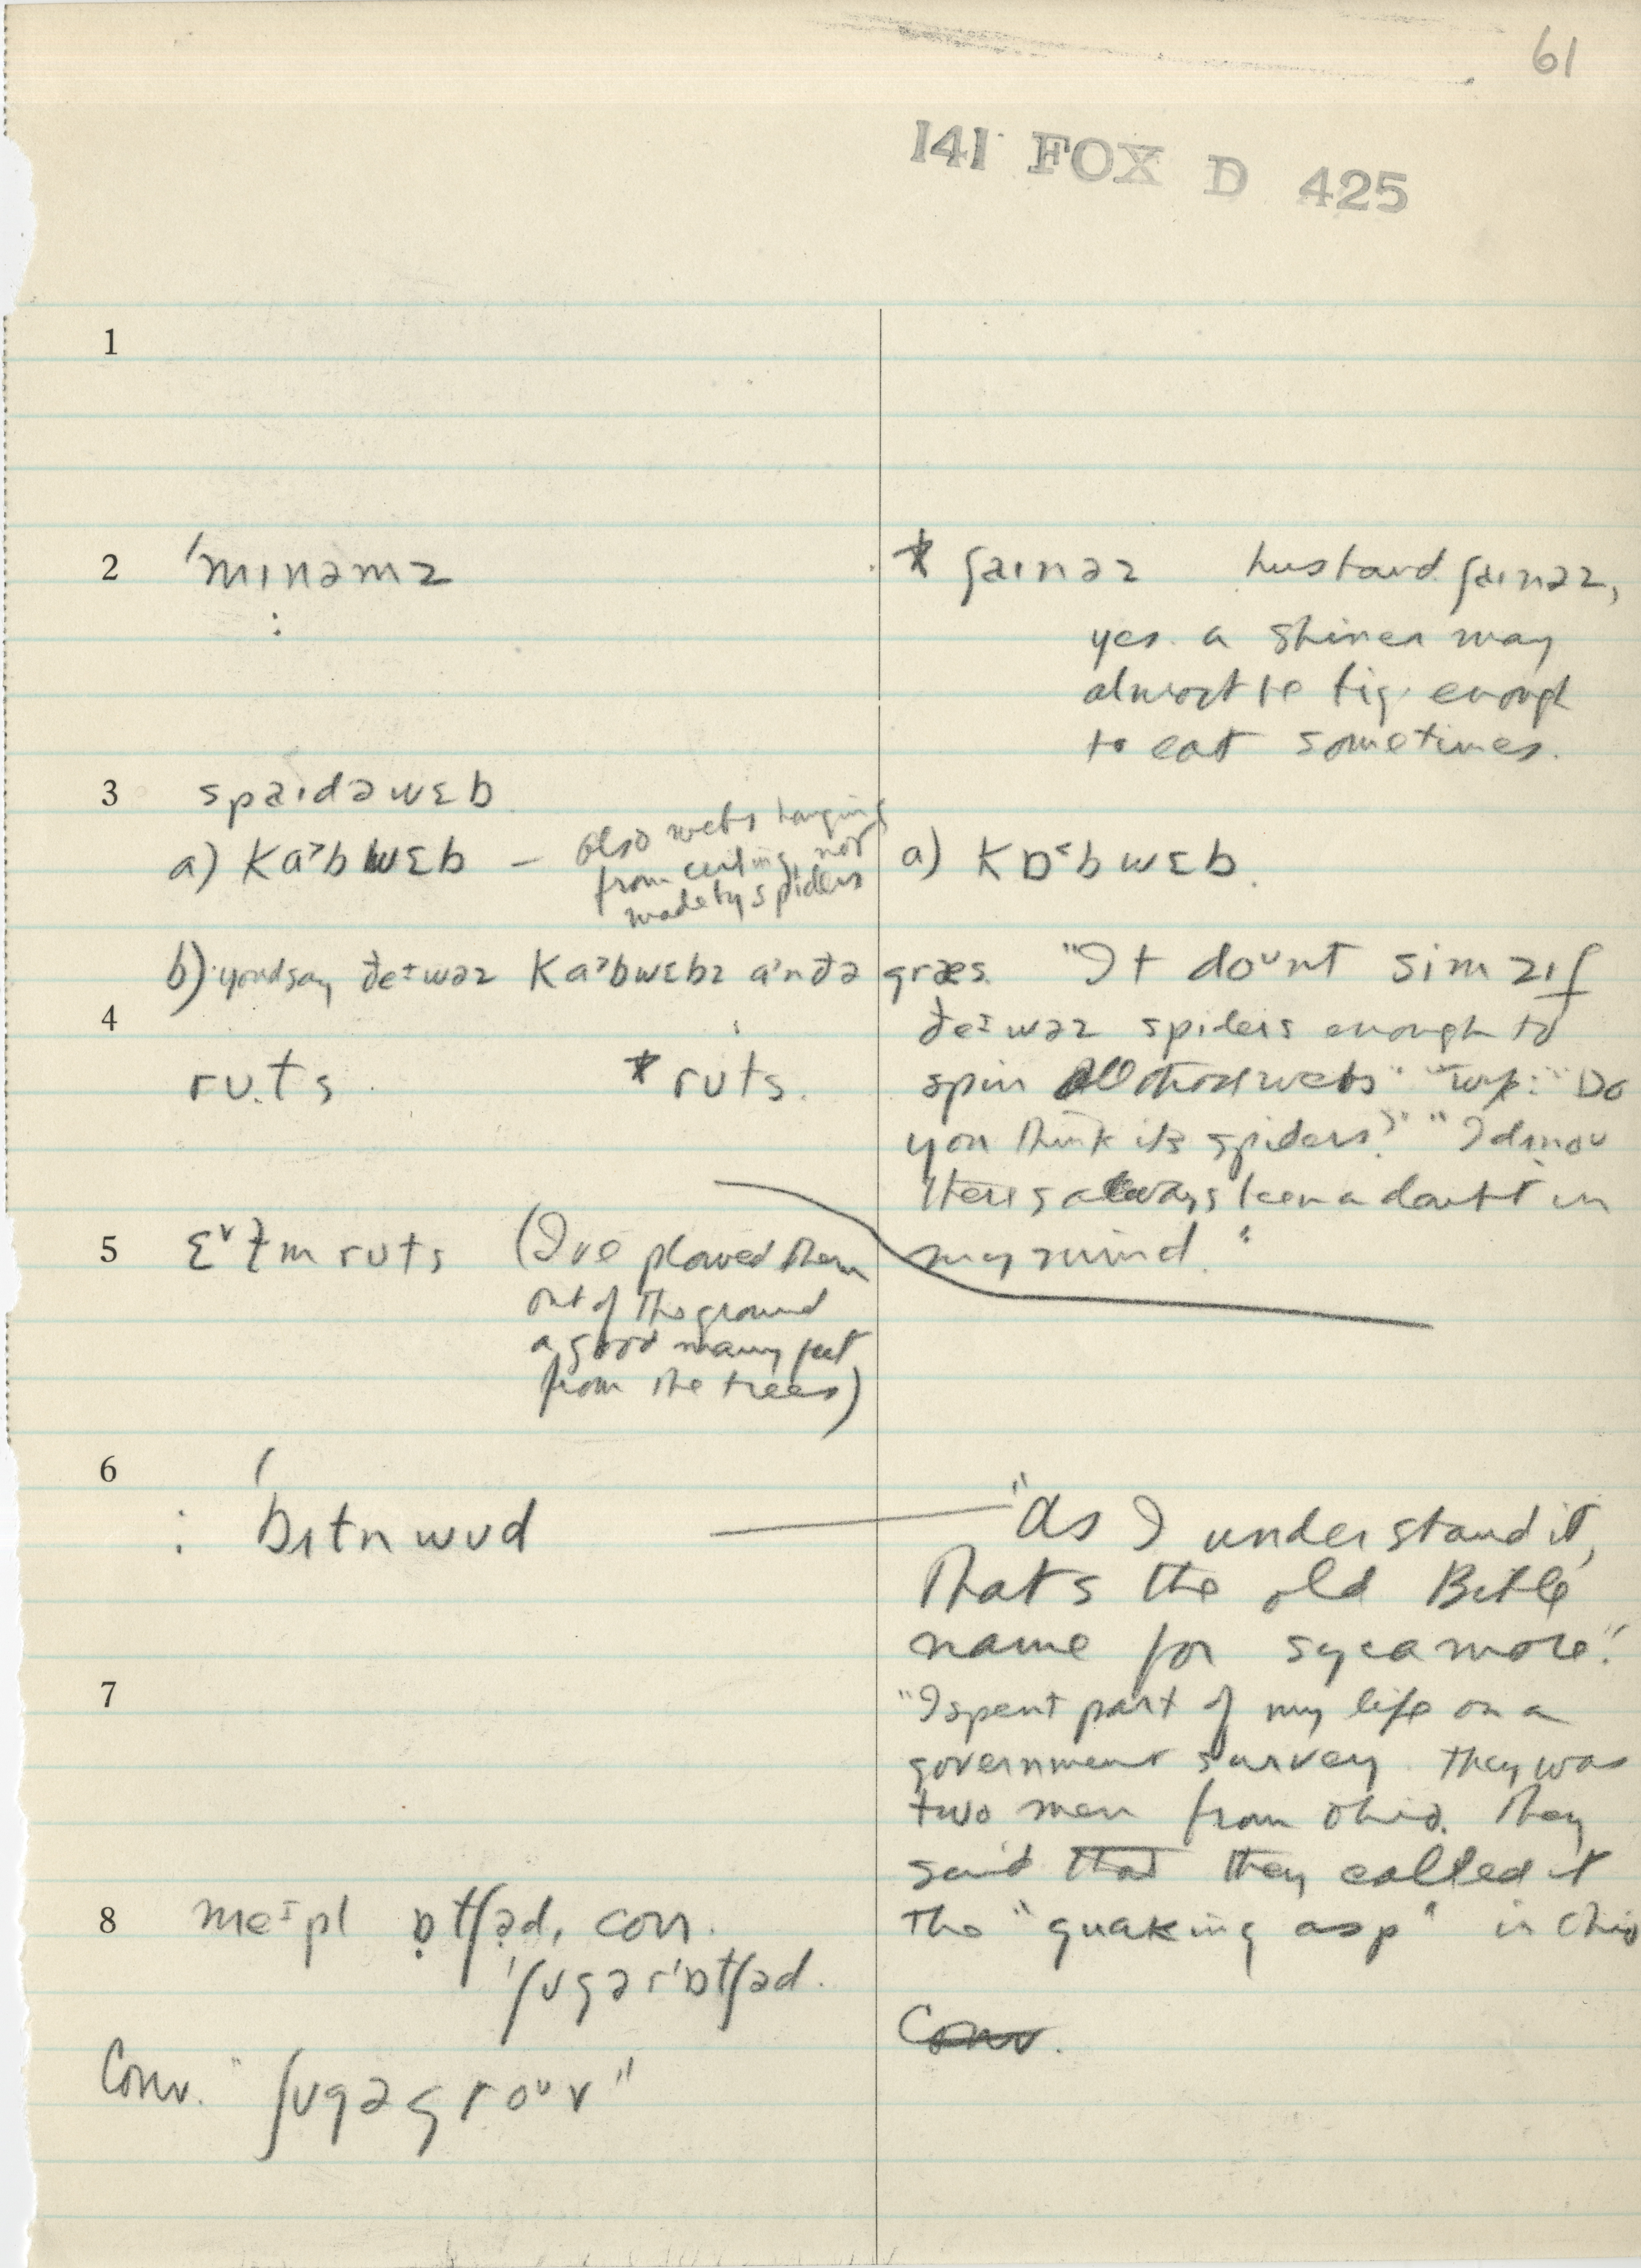 61
141 FOX D 425
1
2 'mɪnəmz
* ʃaɪnəz husband ʃaɪnəz,
yes. a shiner may
almost be big enough
to eat sometimes.
3 spaɪdəwɛb
a) Ka˃bwɛb – also webs hanging
from ceiling, not
made by spiders
a) Kɒ˂bwɛb.
b) you'd say ðeɪwəz Ka˃bwɛbz a˃nðə græs. "It doᵘnt sim zɪf
4
ðeɪwəz spiders enough to
spin all those webs" "Do
you think its spiders?" "I dunno
There's always been a doubt in
my mind."
ru.ts * ruts.
5 ɛᵛɫm ruts (I've plowed them
out of the ground
a good many feet
from the trees)
6
: 'bʌtnwʊd
"As I understand it,
that's the old Bible
name for sycamore".
7
"I spent part of my life on a
government survey. They was
two men from Ohio. They
said that they called it
the "quaking asp" in Ohio
8 meɪpl ɒtʃəd, conv.
'ʃʊgər'ɒtʃəd.
Conv.
Conv. "ʃʊgəgroᵘv"